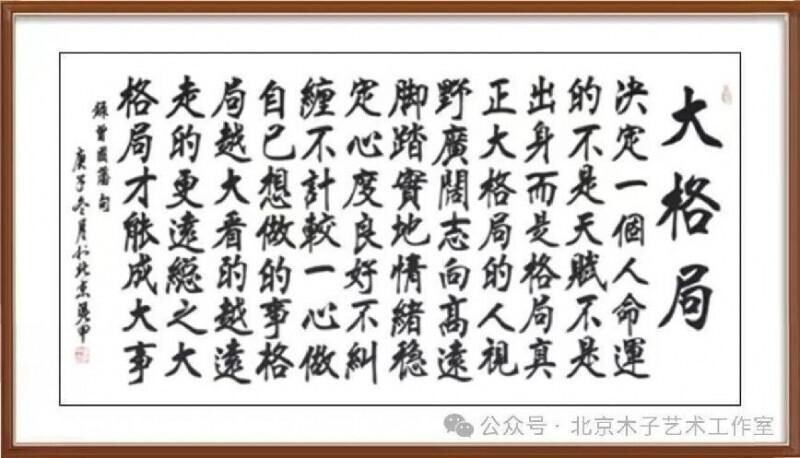 大格局
决定一個人命運
的不是天賦不是
出身而是格局真
正大格局的人視
野廣闊志向高遠
脚踏實地情緒穩
定心度良好不糾
纏不計較一心做
自己想做的事格
局越大看的越遠
走的更遠總之大
格局才能成大事
錄曾國藩句
庚子冬月於北京
公众号·北京木子艺术工作室